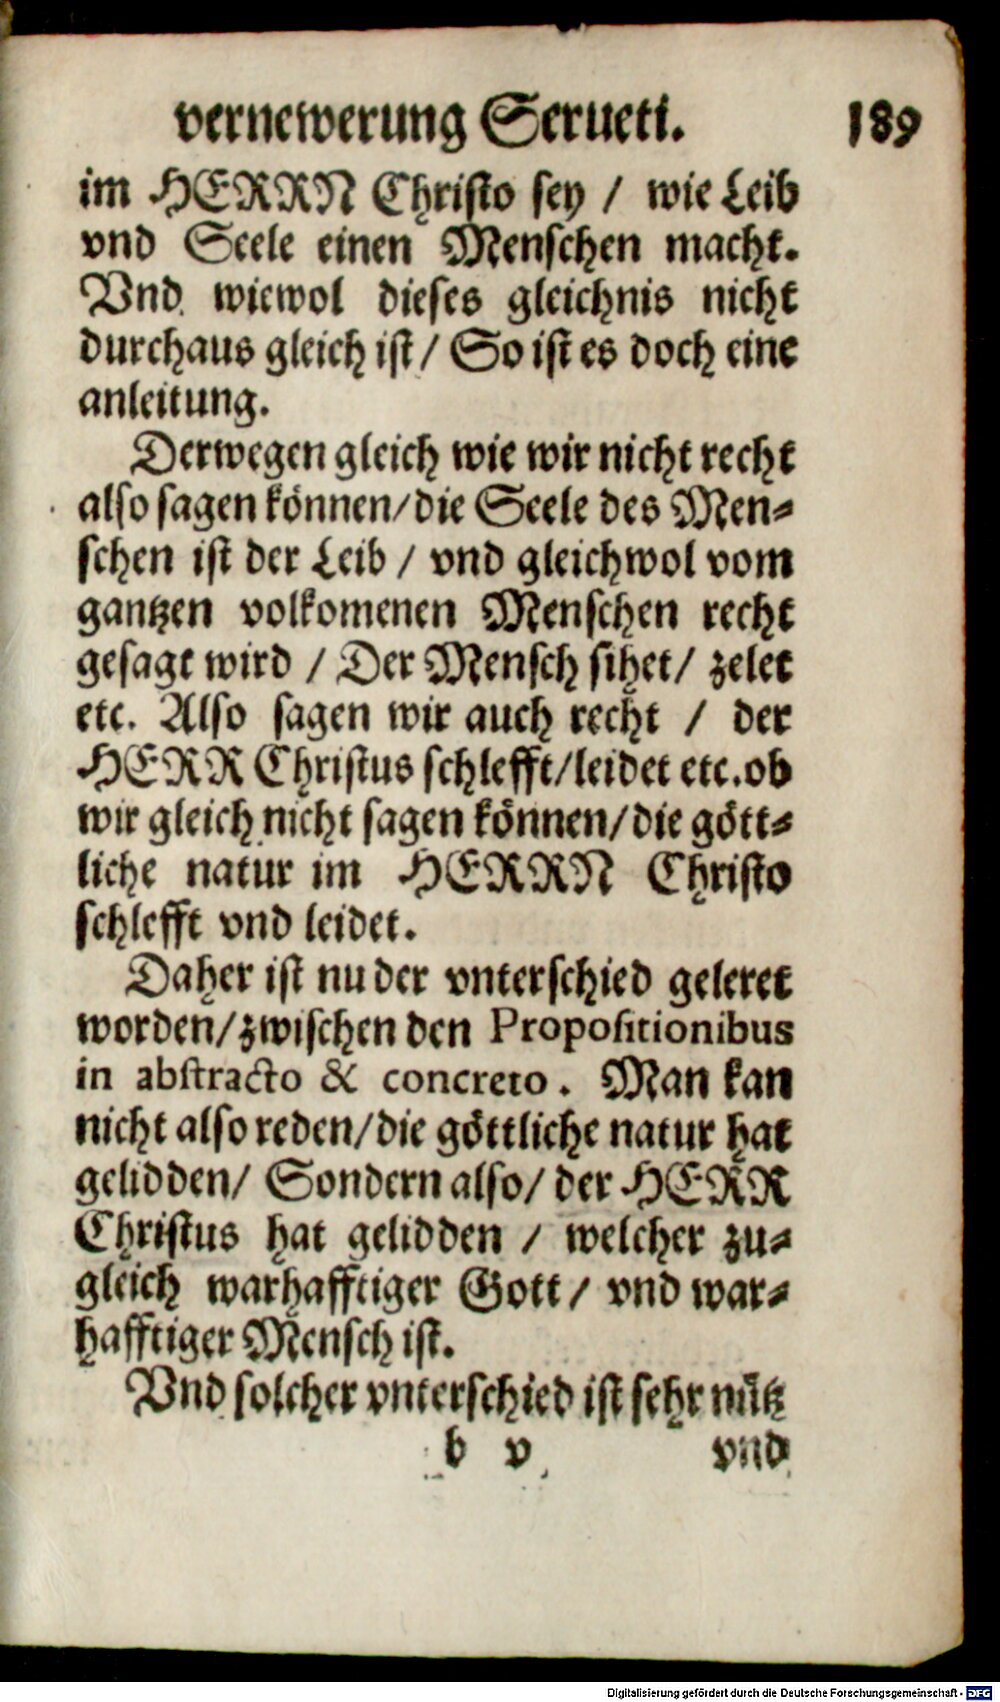 vernewerung Serueti. 189
im HERRN Christo sey / wie Leib
vnd Seele einen Menschen macht.
Vnd wiewol dieses gleichnis nicht
durchaus gleich ist / So ist es doch eine
anleitung.
Derwegen gleich wie wir nicht recht
also sagen können / die Seele des Men-
schen ist der Leib / vnd gleichwol vom
gantzen volkomenen Menschen recht
gesagt wird / Der Mensch sihet / zelet
etc. Also sagen wir auch recht / der
HERR Christus schlefft / leidet etc. ob
wir gleich nicht sagen können / die gött-
liche natur im HERRN Christo
schlefft vnd leidet.
Daher ist nu der vnterschied geleret
worden / zwischen den Propositionibus
in abstracto & concreto. Man kan
nicht also reden / die göttliche natur hat
gelidden / Sondern also / der HERR
Christus hat gelidden / welcher zu-
gleich warhafftiger Gott / vnd war-
hafftiger Mensch ist.
Vnd solcher vnterschied ist sehr nütz
b v vnd
Digitalisierung gefördert durch die Deutsche Forschungsgemeinschaft - DFG